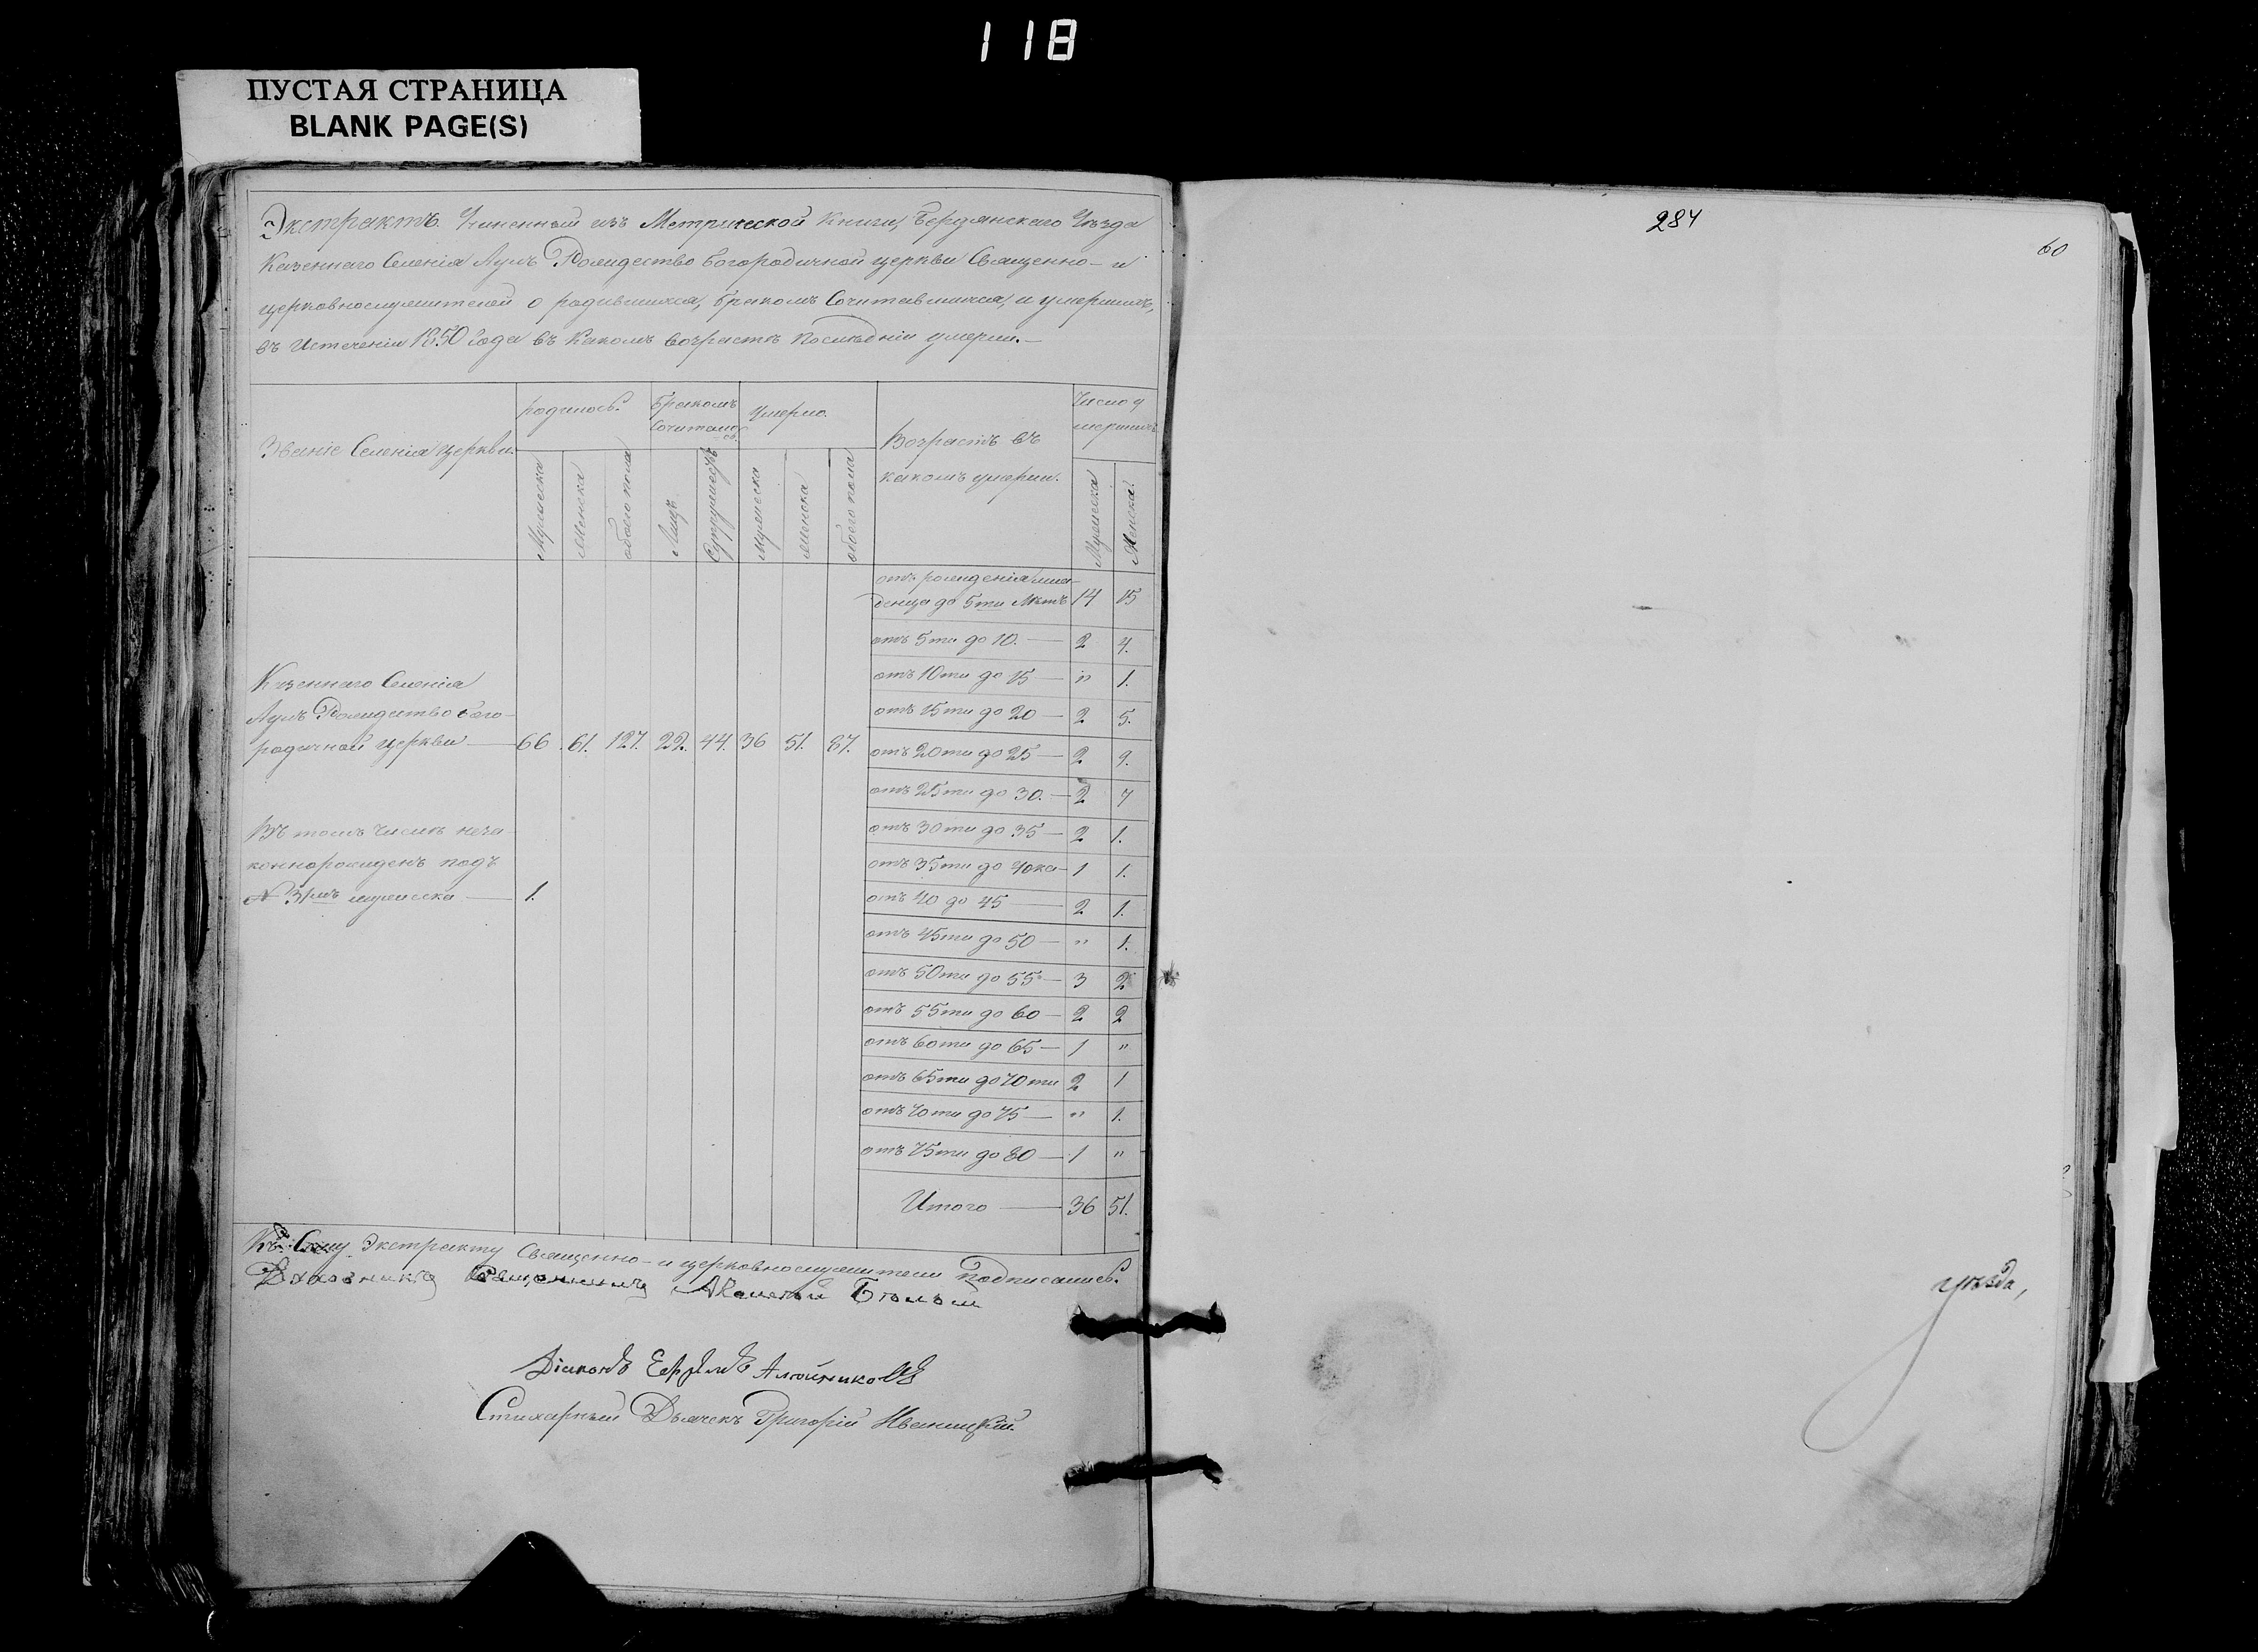 118
ПУСТАЯ СТРАНИЦА
BLANK PAGE(S)
Экстрактъ Учиненный изъ Метрической Книги, Бердянскаго Уѣзда
Казеннаго Селенія Ауль Рождество богородичной церкви Священно- и
церковнослужителей о родившихся, бракомъ Сочитавшихся, и умершихъ,
въ Истеченіи 1850 Года въ Какомъ возрастѣ Послѣдніи умерли.-
Званіе Селенія церкви.
родилось.
бракомъ Сочитано
умерло.
Возрастъ въ
какомъ умерли.
Число у
мершихъ
Мужеска
Женска
обоего пола
Лицъ
Супружествъ
мужеска
женска
обоего пола
Мужеска
Женска.
Казеннаго Селенія
Ауль Рождество бого-
родичной церкви — 66 61. 127. 22. 44. 36 51. 87.
Въ томъ числѣ неза-
коннорожденъ подъ
№ 31мъ мужеска — 1.
отъ рожденія мла-
денца до 5ти Лѣтъ 14 15
отъ 5ти до 10. — 2 7.
отъ 10ти до 15 — " 1.
отъ 15ти до 20 — 2 5.
отъ 20ти до 25 — 2 9.
отъ 25ти до 30. — 2 4
отъ 30ти до 35 — 2 1.
отъ 35ти до 40ка — 1 1.
отъ 40 до 45 — 2 1.
отъ 45ти до 50 — " 1.
отъ 50ти до 55 — 3 2
отъ 55ти до 60 — 2 2
отъ 60ти до 65 — 1 "
отъ 65ти до 70ти 2 1
отъ 70ти до 75 — " 1.
отъ 75ти до 80 — 1 "
Итого — 36 51.
Къ Сему Экстракту Священно- и церковнослужители Подписались.
Священникъ Алексѣй Бѣлый
Діаконъ Ефремъ Алейниковъ
Стихарный Дьячекъ Григорій Иваницкій.
284
60
уѣзда,